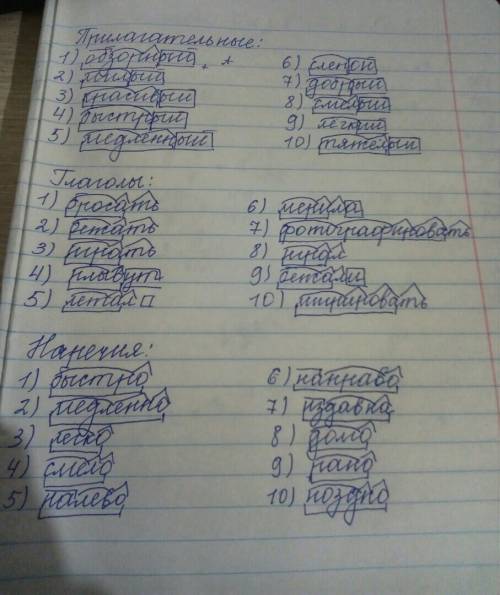 Прилагательные:
1) обзорный
2) милый
3) красивый
4) быстрый
5) медленный
6) слепой
7) добрый
8) смелый
9) лёгкий
10) тяжёлый
Глаголы:
1) бросать
2) бежать
3) играть
4) плывут
5) летал
6) мерила
7) фотографировать
8) играл
9) бежали
10)
Наречия:
1) быстро
2) медленно
3) легко
4) смело
5) налево
6) направо
7) издавна
8) дома
9) рано
10) поздно